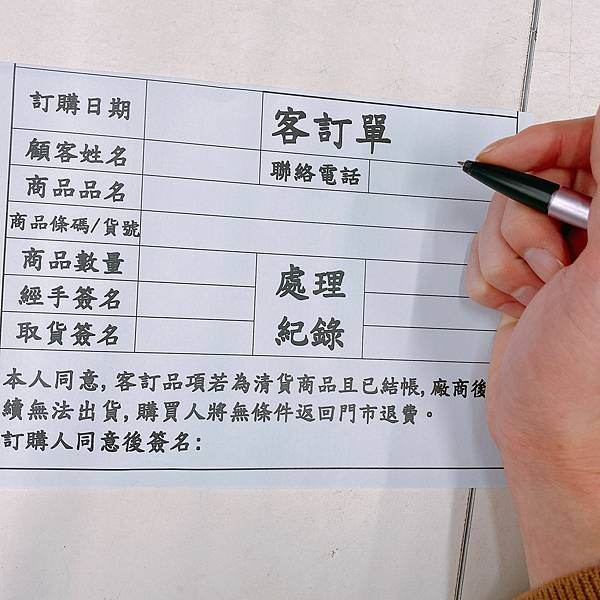 訂購日期
客訂單
顧客姓名
聯絡電話
商品品名
商品條碼/貨號
商品數量
處理
紀錄
經手簽名
取貨簽名
本人同意, 客訂品項若為清貨商品且已結帳, 廠商後
續無法出貨, 購買人將無條件返回門市退費。
訂購人同意後簽名: